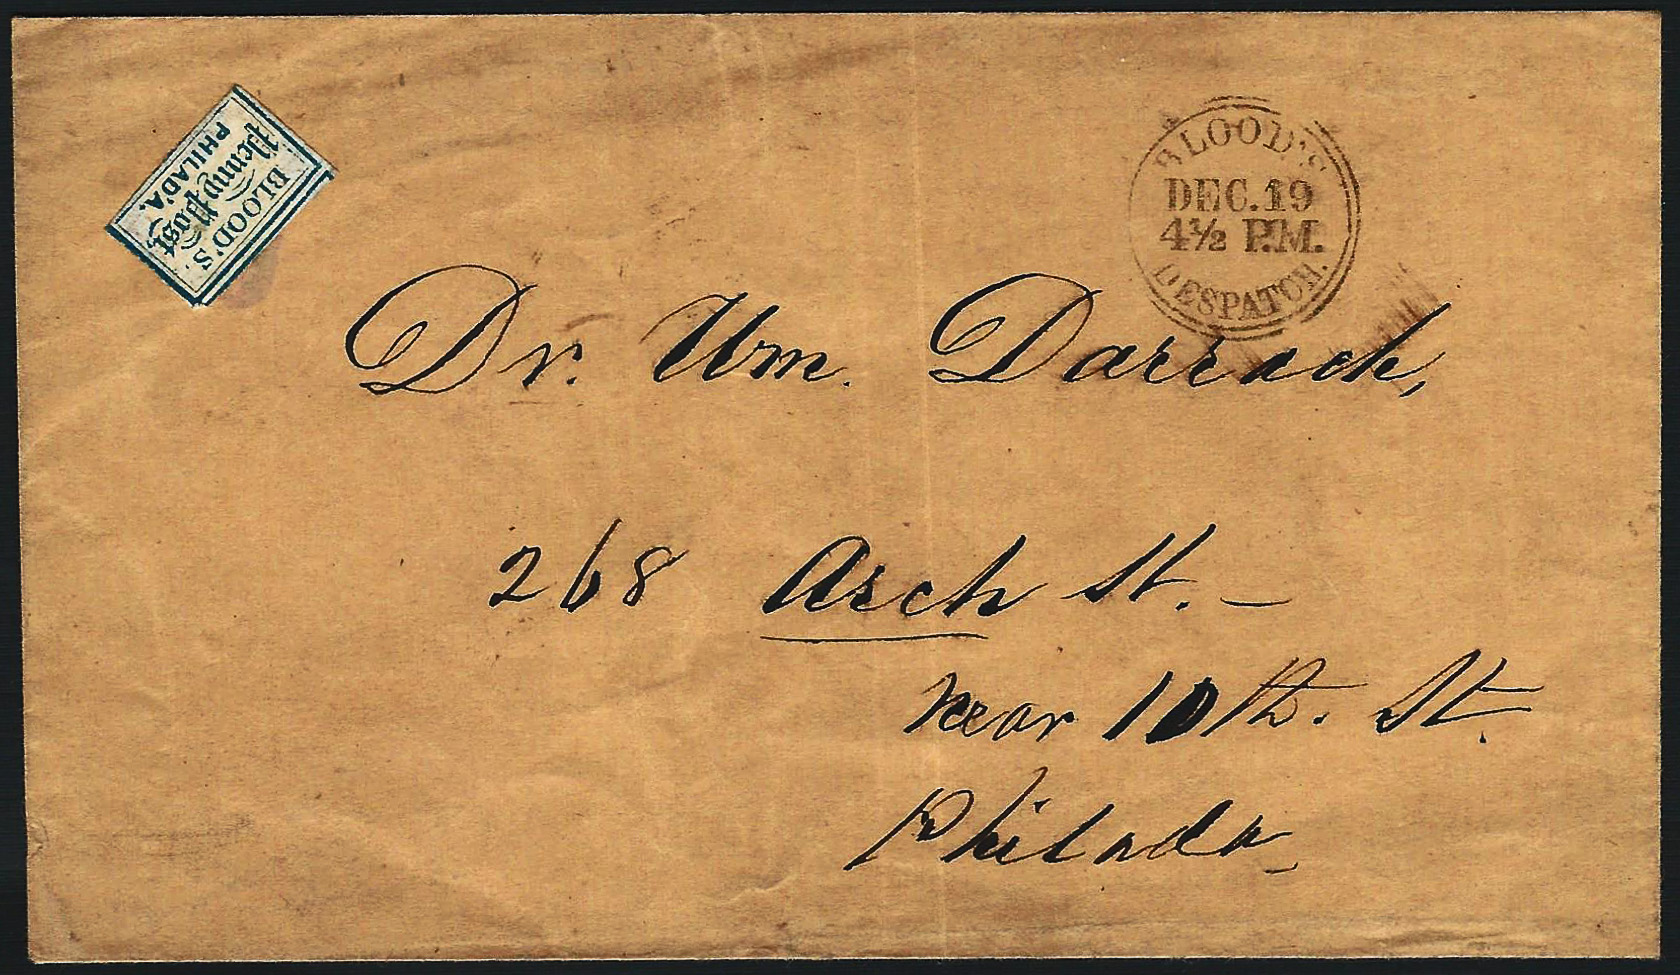 BLOOD'S
Penny Post
PHILAD'A.
BLOOD'S
DEC. 19
4½ P.M.
DESPATCH.
Dr. Wm. Darrach,
268 Arch St. –
near 10th. St.
Philada